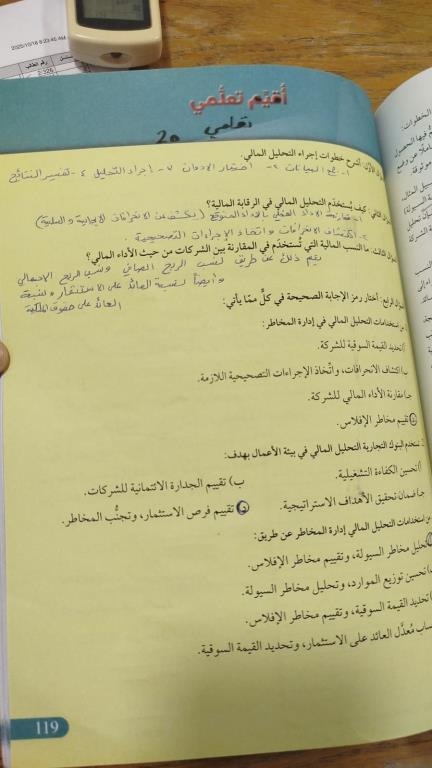 2025/10/16 8:23:45 AM
رقم الطلبي
2,326
أقيّم تعلّمي
تعلمي 20
السؤال الأول: أشرح خطوات إجراء التحليل المالي.
١- جمع البيانات ٢- اختيار الادوات ٣- اجراء التحليل ٤- تفسير النتائج
السؤال الثاني: كيف يُستخدَم التحليل المالي في الرقابة المالية؟
١- مقارنة الاداء الفعلي بالاداء المتوقع (يكشف عن الانحرافات الايجابية والسلبية)
٢- اكتشاف الانحرافات واتخاذ الاجراءات التصحيحية
السؤال الثالث: ما النسب المالية التي تُستخدَم في المقارنة بين الشركات من حيث الأداء المالي؟
يتم ذلك عن طريق نسب الربح الصافي ونسب الربح الاجمالي
وأيضاً نسبة العائد على الاستثمار ونسبة
العائد على حقوق الملكية
السؤال الرابع: أختار رمز الإجابة الصحيحة في كلٍّ ممّا يأتي:
من استخدامات التحليل المالي في إدارة المخاطر:
أ) تحديد القيمة السوقية للشركة.
ب) اكتشاف الانحرافات، واتّخاذ الإجراءات التصحيحية اللازمة.
جـ) مقارنة الأداء المالي للشركة.
د) تقييم مخاطر الإفلاس.
تستخدم البنوك التجارية التحليل المالي في بيئة الأعمال بهدف:
أ) تحسين الكفاءة التشغيلية.
ب) تقييم الجدارة الائتمانية للشركات.
جـ) ضمان تحقيق الأهداف الاستراتيجية.
د) تقييم فرص الاستثمار، وتجنُّب المخاطر.
من استخدامات التحليل المالي إدارة المخاطر عن طريق:
تحليل مخاطر السيولة، وتقييم مخاطر الإفلاس.
تحسين توزيع الموارد، وتحليل مخاطر السيولة.
تحديد القيمة السوقية، وتقييم مخاطر الإفلاس.
مُعدَّل العائد على الاستثمار، وتحديد القيمة السوقية.
119